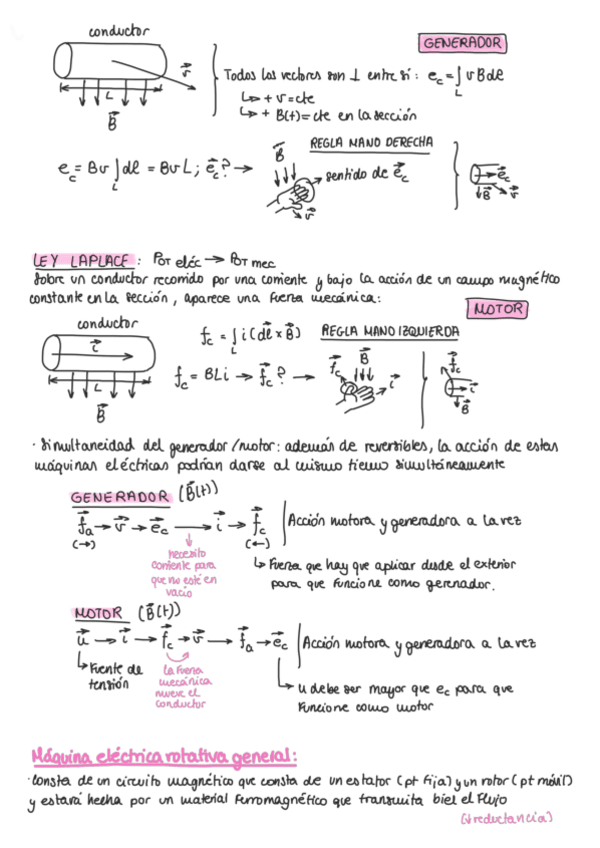 conductor
GENERADOR
v⃗
L
B⃗
Todos los vectores son ⊥ entre sí: e_c = ∫_L v B dl
↳ + v = cte
↳ + B(t) = cte en la sección
REGLA MANO DERECHA
e_c = Bv ∫_L dl = BvL; e⃗_c? →
B⃗
sentido de e⃗_c
v⃗
e⃗_c
B⃗ v⃗
LEY LAPLACE: Pot eléc → Pot mec
Sobre un conductor recorrido por una corriente y bajo la acción de un campo magnético
constante en la sección, aparece una fuerza mecánica:
MOTOR
conductor
i⃗
L
B⃗
f_c = ∫_L i(dl⃗ x B⃗)
REGLA MANO IZQUIERDA
f_c = BLi → f⃗_c? →
f⃗_c B⃗ i⃗
f⃗_c
i⃗
B⃗
· Simultaneidad del generador/motor: además de reversibles, la acción de estas
máquinas eléctricas podrían darse al mismo tiemo simultáneamente
GENERADOR (B⃗(t))
f⃗a → v⃗ → e⃗_c → i⃗ → f⃗_c
(→) (←)
Acción motora y generadora a la vez
necesito
corriente para
que no esté en
vacío
↳ Fuerza que hay que aplicar desde el exterior
para que funcione como gerenador.
MOTOR (B⃗(t))
u⃗ → i⃗ → f⃗_c → v⃗ → f⃗a → e⃗_c
Acción motora y generadora a la vez
↳ Fuente de
tensión
la fuerza
mecánica
mueve el
conductor
↳ u debe ser mayor que e_c para que
funcione como motor
Máquina eléctrica rotativa general:
· Consta de un circuito magnético que consta de un estator (pt fija) y un rotor (pt móvil)
y estará hecha por un material ferromagnético que transmita biel el flujo
(↓reductancia)